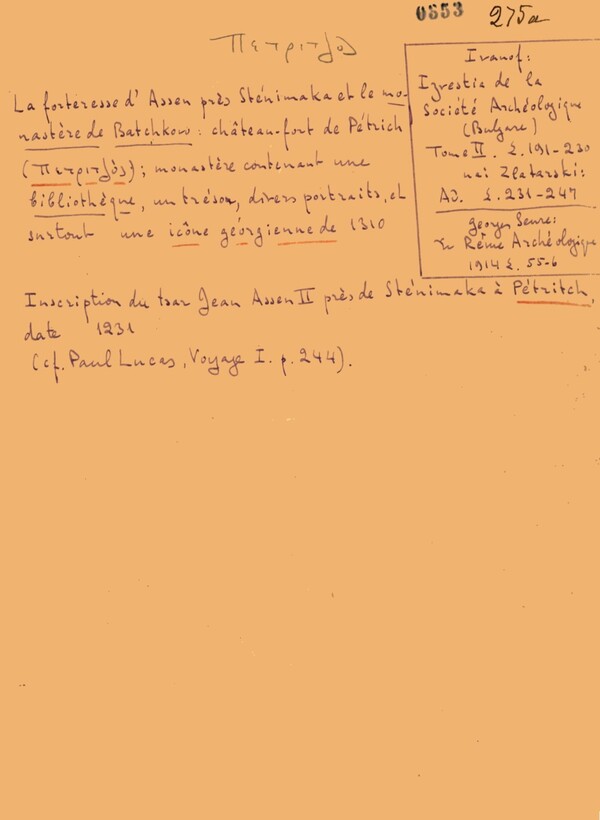 0853 275a
Πετριτζὸς
La forteresse d'Assen près Sténimaka et le mo-
nastère de Batchkovo : château-fort de Pétrich
(Πετριτζὸς) ; monastère contenant une
bibliothèque, un trésor, divers portraits, et
surtout une icône géorgienne de 1310
Ivanof :
Izvestia de la
Société Archéologique
(Bulgare)
Tome II . Σ. 191-230
και Zlatarski :
AD. Σ. 231-247
Georges Seure :
Σν Rême Archéologique
1914 Σ. 55-6
Inscription du tsar Jean Assen II près de Sténimaka à Pétritch,
date 1231
(cf. Paul Lucas, Voyage I. p. 244).